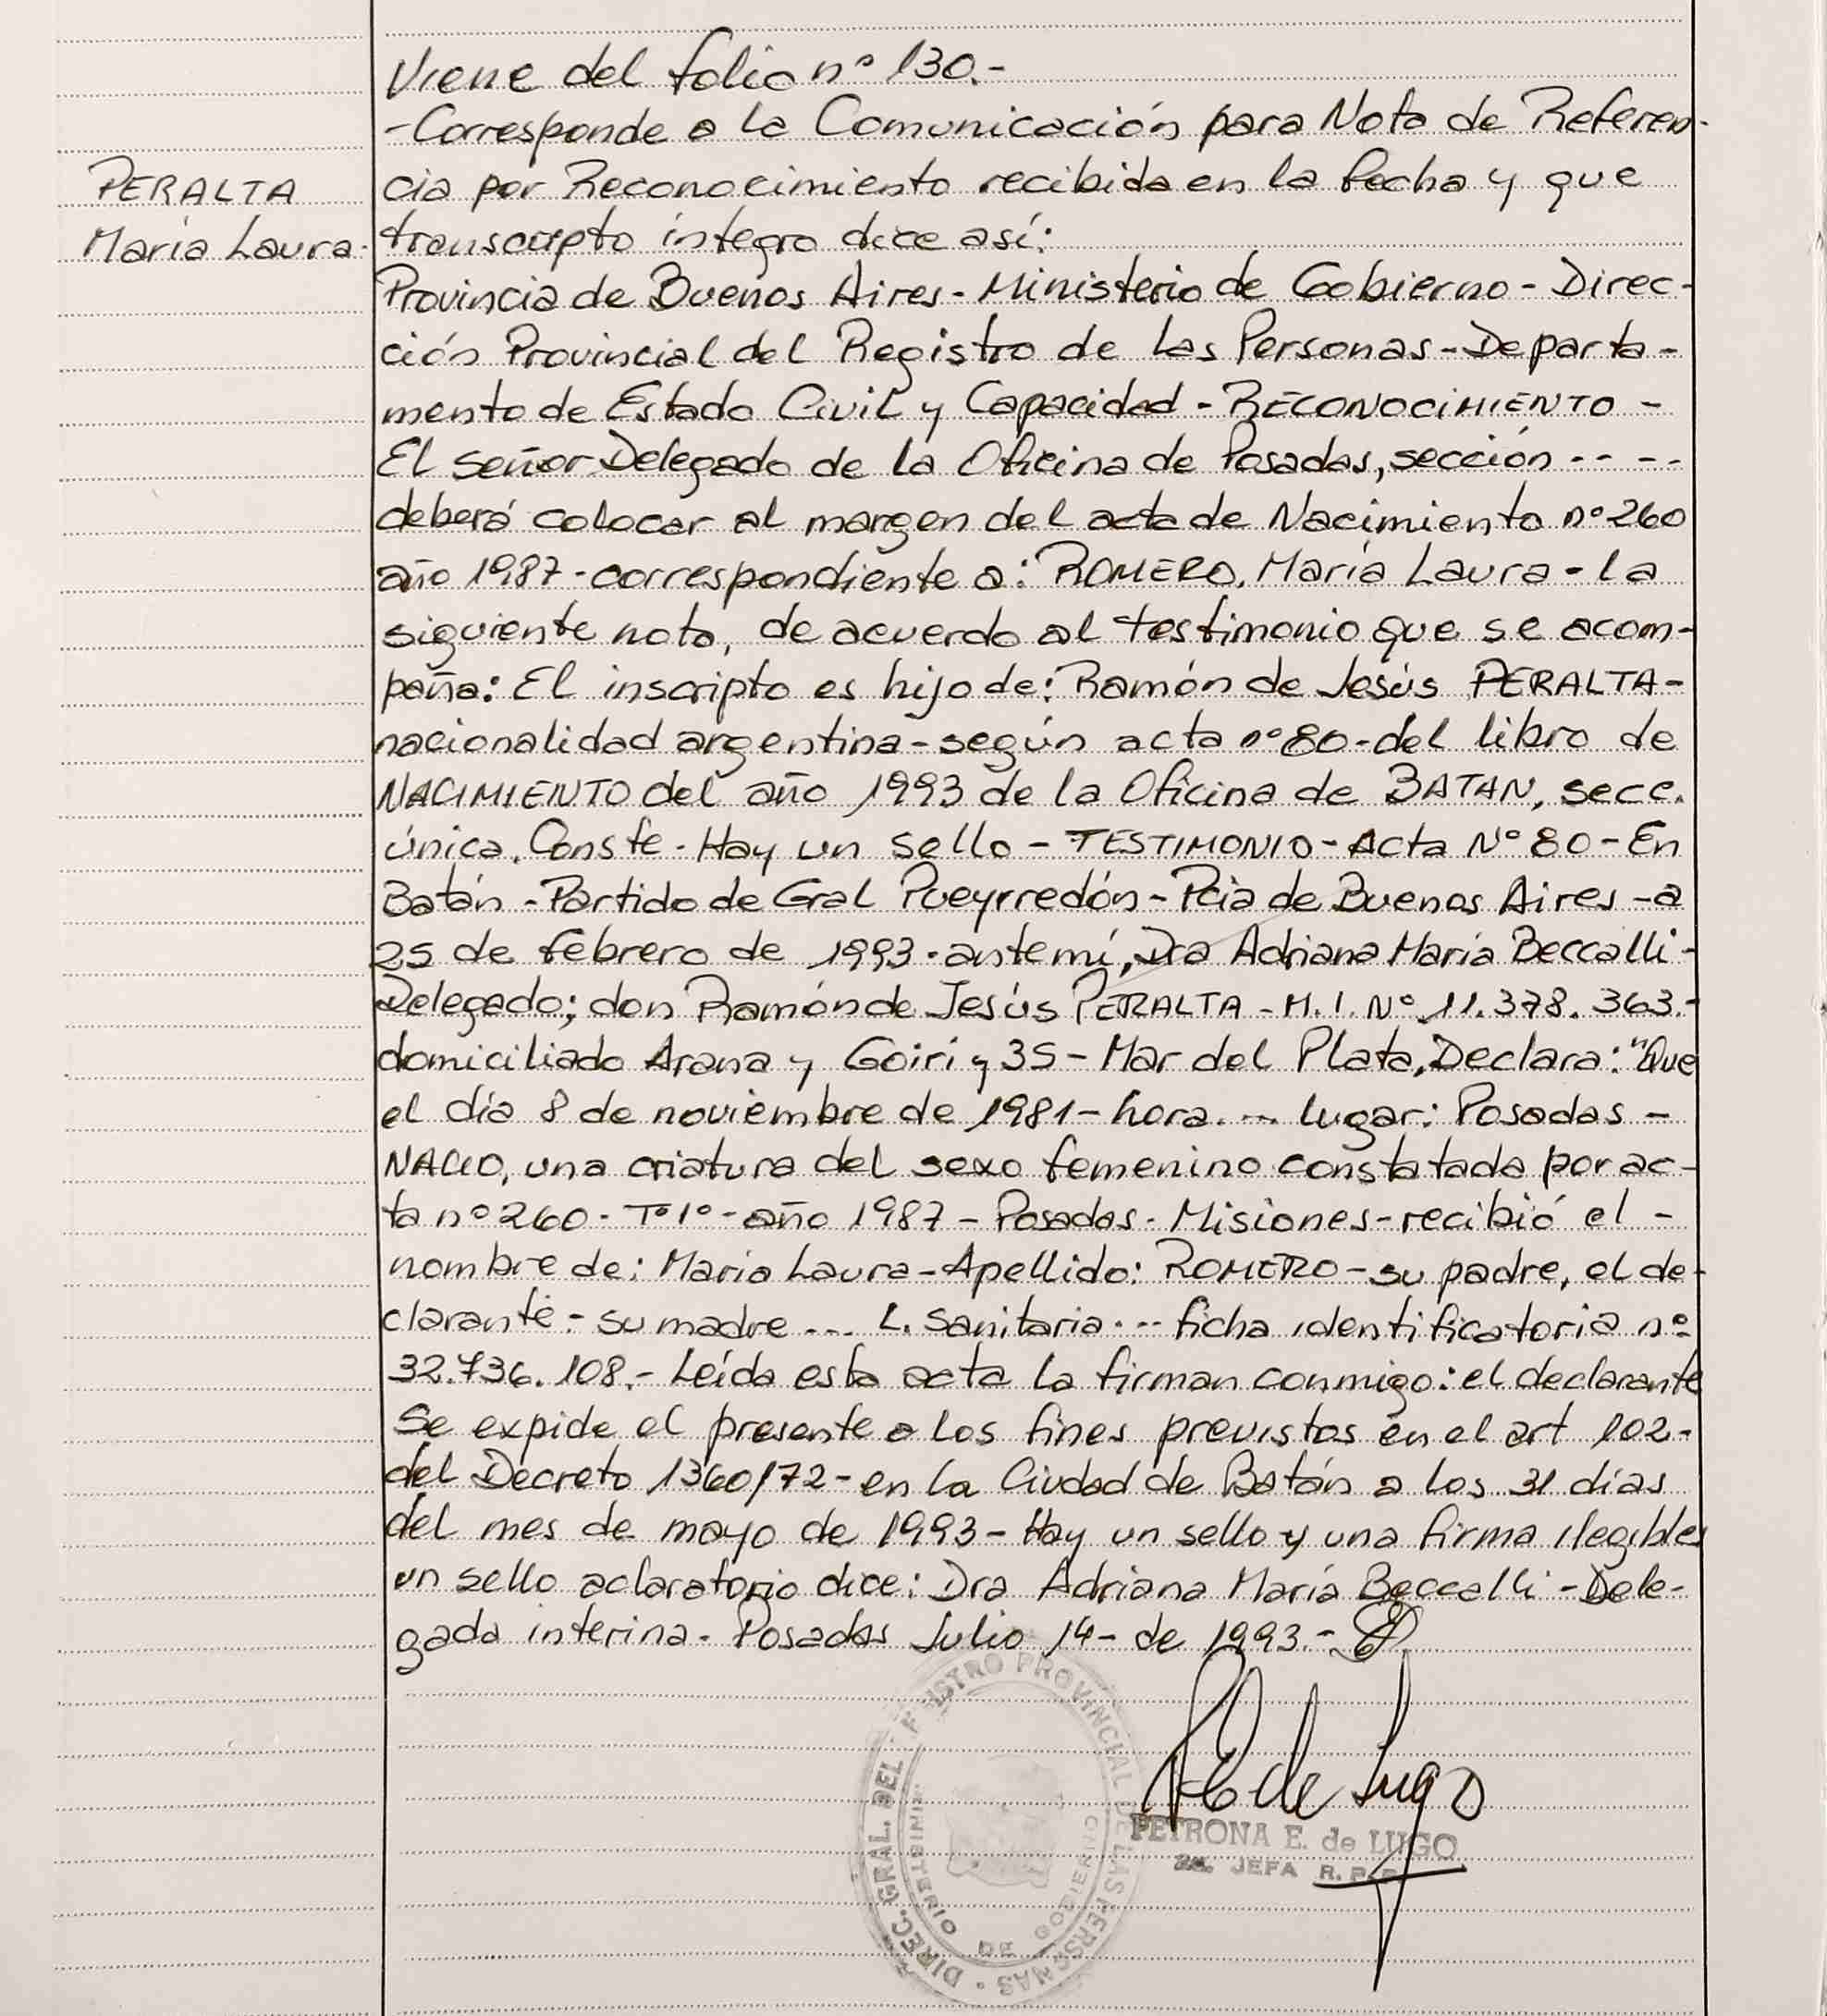 Viene del folio nº 130.-
-Corresponde a la Comunicación para Nota de Referen-
PERALTA
María Laura.
cia por Reconocimiento recibida en la fecha y que
transcripto íntegro dice así:
Provincia de Buenos Aires - Ministerio de Gobierno - Direc-
ción Provincial del Registro de las Personas - Departa-
mento de Estado Civil y Capacidad - RECONOCIMIENTO -
El señor Delegado de la Oficina de Posadas, sección - - - -
deberá colocar al margen del acta de Nacimiento nº 260
año 1987 - correspondiente a: ROMERO, María Laura - la
siguiente nota, de acuerdo al testimonio que se acom-
paña: El inscripto es hijo de: Ramón de Jesús PERALTA -
nacionalidad argentina - según acta nº 80 - del libro de
NACIMIENTO del año 1993 de la Oficina de BATAN, secc.
única. Conste - Hay un sello - TESTIMONIO - Acta Nº 80 - En
Batán - Partido de Gral Pueyrredón - Pcia de Buenos Aires - a
25 de febrero de 1993 - ante mí, Dra Adriana María Beccalli -
Delegado; don Ramón de Jesús PERALTA - M.I. Nº 11.378.363.-
domiciliado Arana y Goiri y 35 - Mar del Plata, Declara: "Que
el día 8 de noviembre de 1981 - hora. --- lugar: Posadas -
NACIO, una criatura del sexo femenino constatada por ac-
ta nº 260 - Tº 1º - año 1987 - Posadas - Misiones - recibió el -
nombre de: María Laura - Apellido: ROMERO - su padre, el de-
clarante - su madre --- L. sanitaria --- ficha identificatoria nº
32.736.108.- Leída esta acta la firman conmigo: el declarante
Se expide el presente a los fines previstos en el art 102 -
del Decreto 1360/72 - en la Ciudad de Batán a los 31 días
del mes de mayo de 1993 - Hay un sello y una firma ilegibles
un sello aclaratorio dice: Dra Adriana María Beccalli - Dele-
gada interina - Posadas Julio 14 - de 1993.-
DIREC. GRAL. DEL REGISTRO PROVINCIAL DE LAS PERSONAS
MINISTERIO DE GOBIERNO
de Lugo
PETRONA E. de LUGO
2a. JEFA R. P.